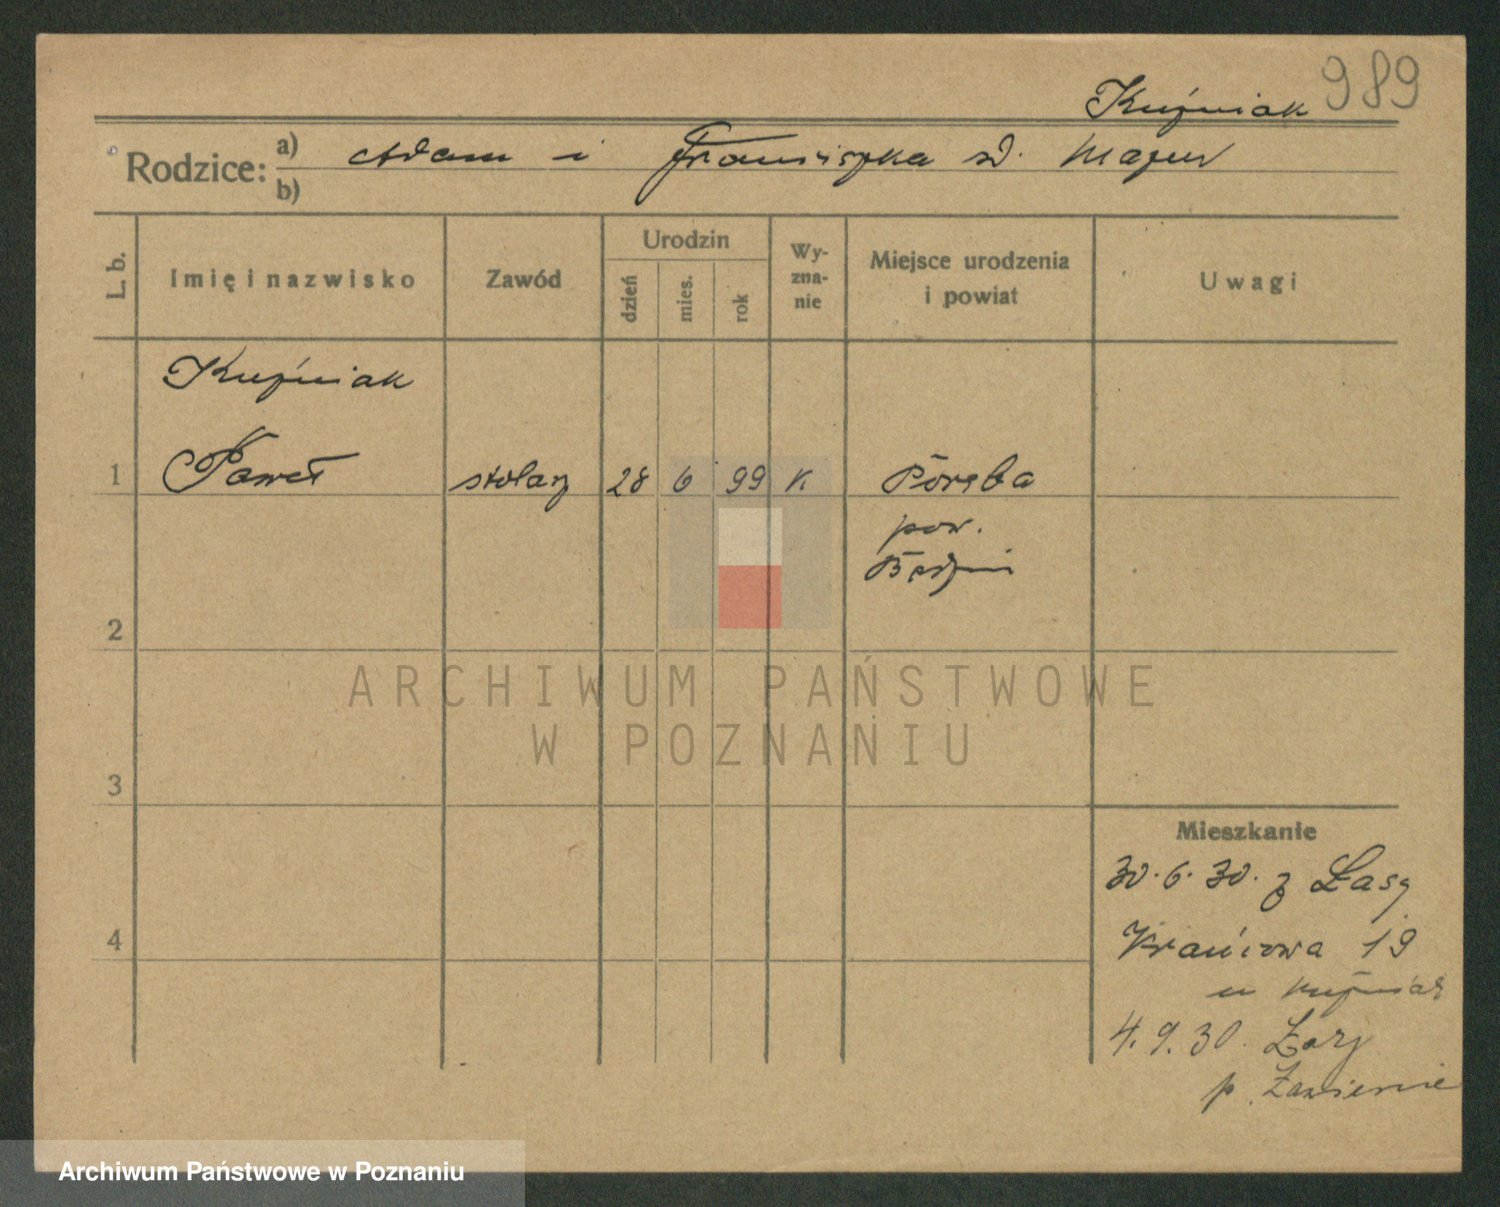 989
Kuźniak
Rodzice: a) Adam i Franciszka zd. Mazur
b)
L. b.
Imię i nazwisko
Zawód
Urodzin
dzień
mies.
rok
Wy-
zna-
nie
Miejsce urodzenia
i powiat
Uwagi
Kuźniak
1 Paweł stolarz 28 6 99 k. Poręba
pow.
Będzin
2
3
4
Mieszkanie
30. 6. 30. z Łasy
Krańcowa 19
u Kuźniak
4. 9. 30.
p. Zawiercie
ARCHIWUM PAŃSTWOWE
W POZNANIU
Archiwum Państwowe w Poznaniu